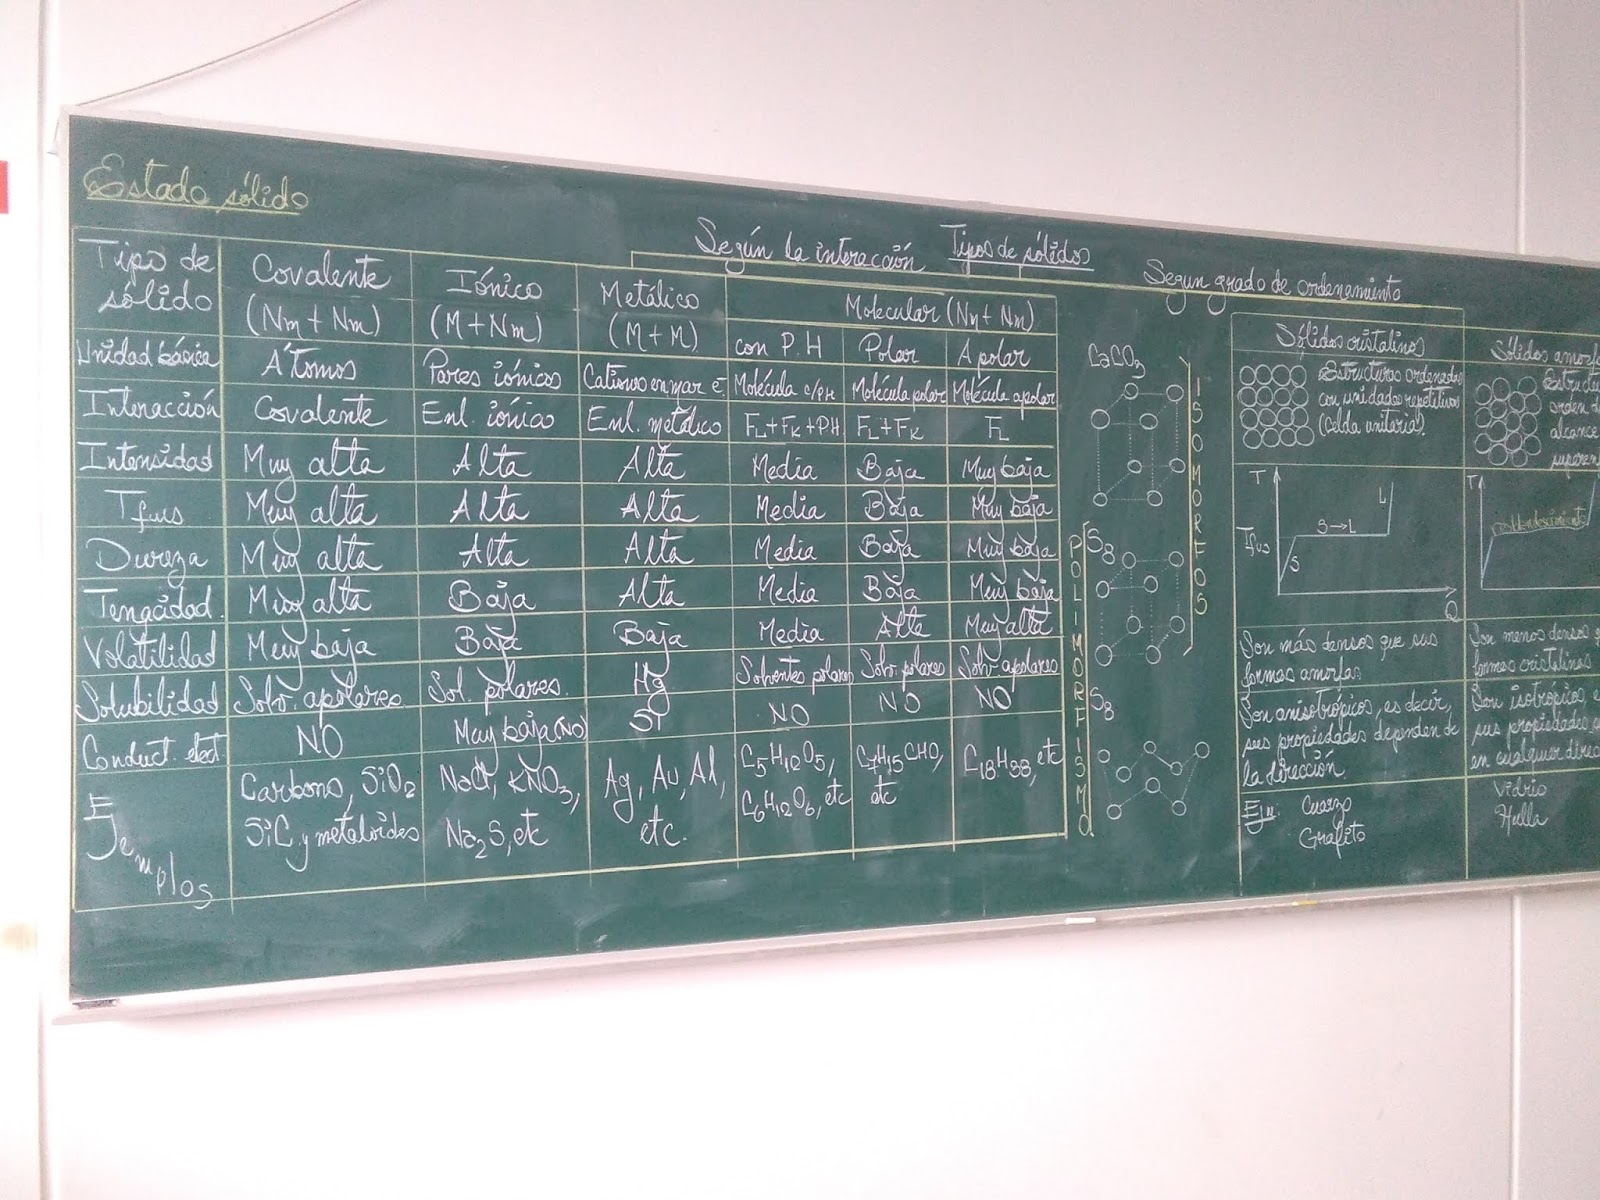 Estado sólido
Según la interacción Tipos de sólidos
Según grado de ordenamiento
Tipo de sólido
Covalente (Nm + Nm)
Iónico (M + Nm)
Metálico (M + M)
Molecular (Nm + Nm)
con P.H Polar Apolar
Unidad básica Átomos Pares iónicos Cationes en mar e⁻ Molécula c/PH Molécula polar Molécula apolar
Interacción Covalente Enl. iónico Enl. metálico FL + FK + PH FL + FK FL
Intensidad Muy alta Alta Alta Media Baja Muy baja
Tfus Muy alta Alta Alta Media Baja Muy baja
Dureza Muy alta Alta Alta Media Baja Muy baja
Tenacidad. Muy alta Baja Alta Media Baja Muy baja
Volatilidad Muy baja Baja Baja Media Alta Muy alta
Solubilidad Solv. apolares. Sol. polares. Hg Solventes polares Solv. polares Solv. apolares
Conduct. elect NO Muy baja (NO) SI NO NO NO
Ejemplos
Carbono, SiO₂
SiC y metaloides
NaCl, KNO₃,
Na₂S, etc
Ag, Au, Al,
etc.
C₅H₁₀O₅,
C₆H₁₂O₆, etc
C₇H₁₅CHO,
etc
C₁₈H₃₈, etc
CaCO₃
ISOMORFOS
S₈
POLIMORFISMO
S₈
Sólidos cristalinos
Estructuras ordenadas
con unidades repetitivas
(Celda unitaria).
T
L
S→L
Tfus
S
Q
Son más densos que sus
formas amorfas
Son anisotrópicos, es decir,
sus propiedades dependen de
la dirección.
Ejm: Cuarzo
Grafito
Sólidos amorf
Estruc
orden d
alcance
T
Son menos densos
formas cristalinas
Son isotrópicos e
sus propiedades
en cualquier direc
Vidrio
Hulla